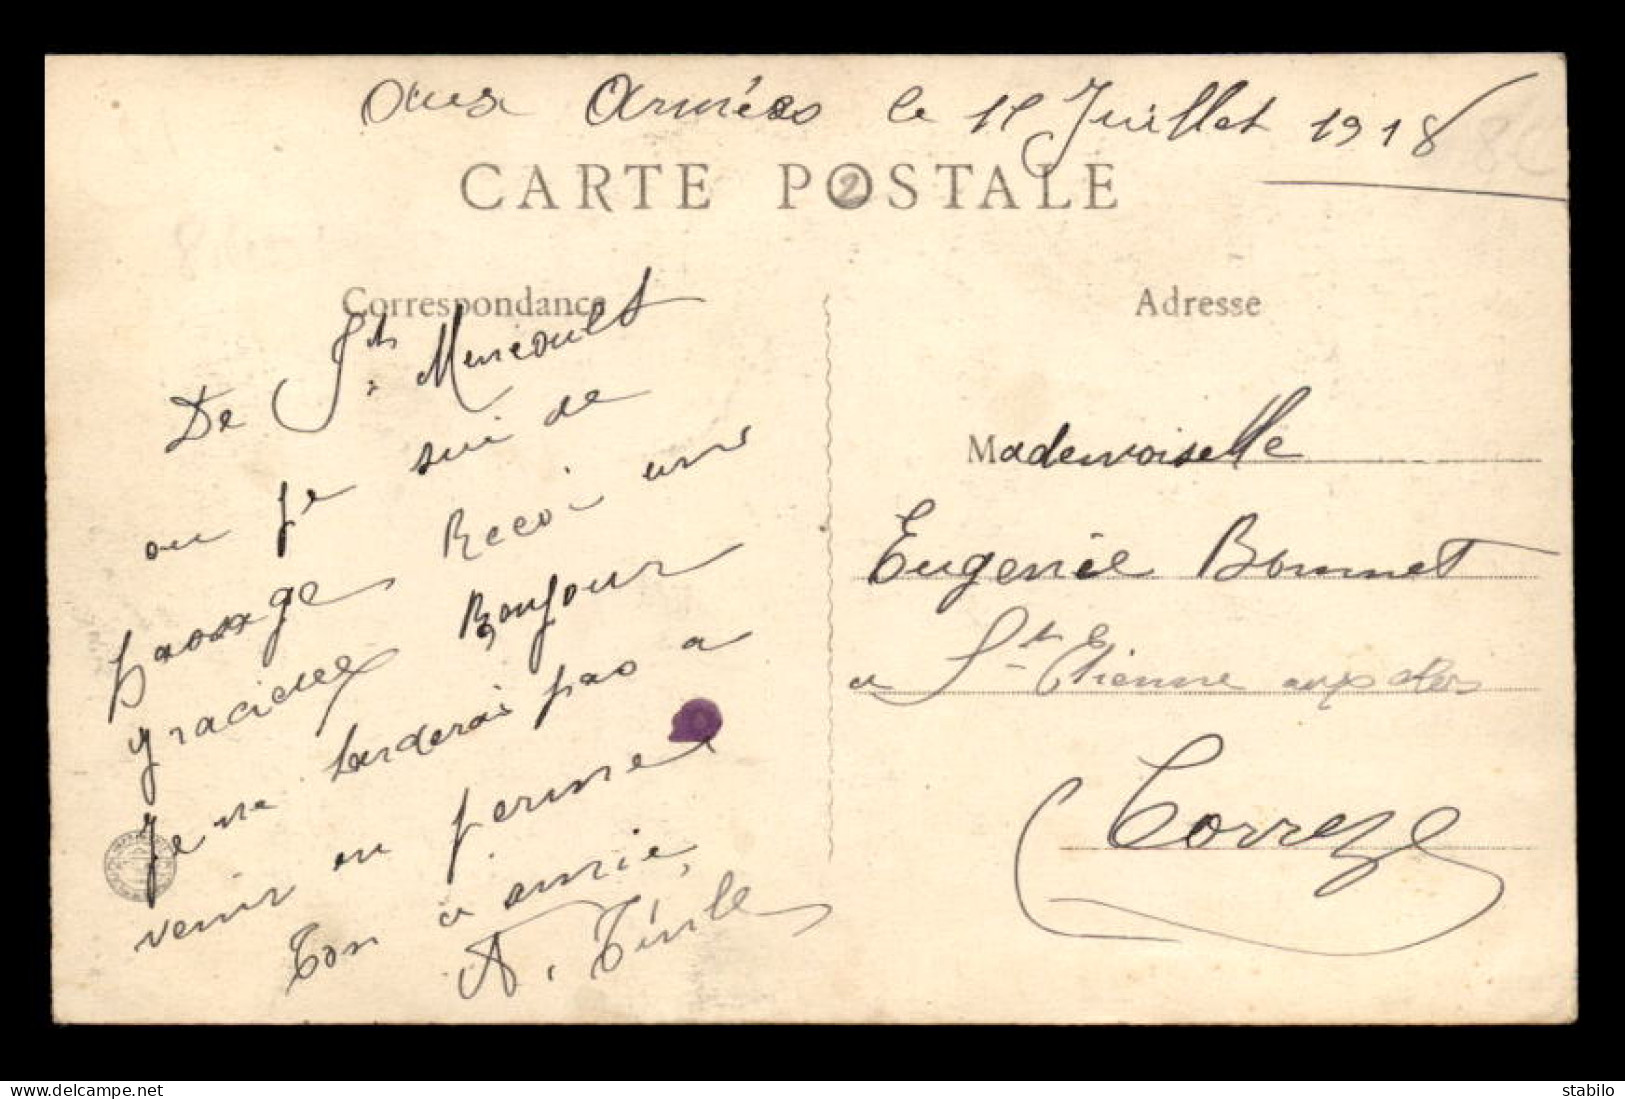 aux Armées le 11 Juillet 1918
CARTE POSTALE
2
Correspondance
De Ste Meneoult
ou je sui de
passage Recoi une
gracieux Bonjour
Je ne tarderai pas a
venir en ferme
Ton a amie,
A.
Adresse
Mademoiselle
Eugenie Bonnet
a St Etienne aux clos
Correze
delcampe.net
stabilo